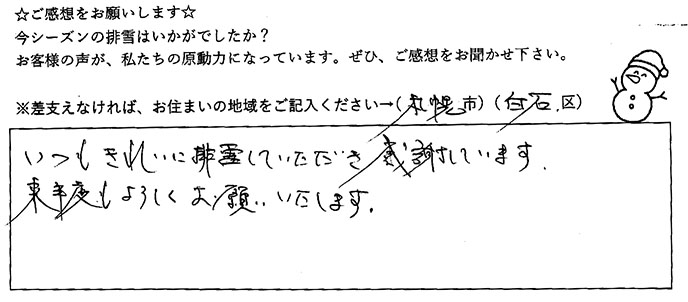 ☆ご感想をお願いします☆
今シーズンの排雪はいかがでしたか？
お客様の声が、私たちの原動力になっています。ぜひ、ご感想をお聞かせ下さい。
※差支えなければ、お住まいの地域をご記入ください→(札幌市)(白石区)
いつもきれいに排雪していただき感謝しています.
来年度もよろしくお願いいたします.